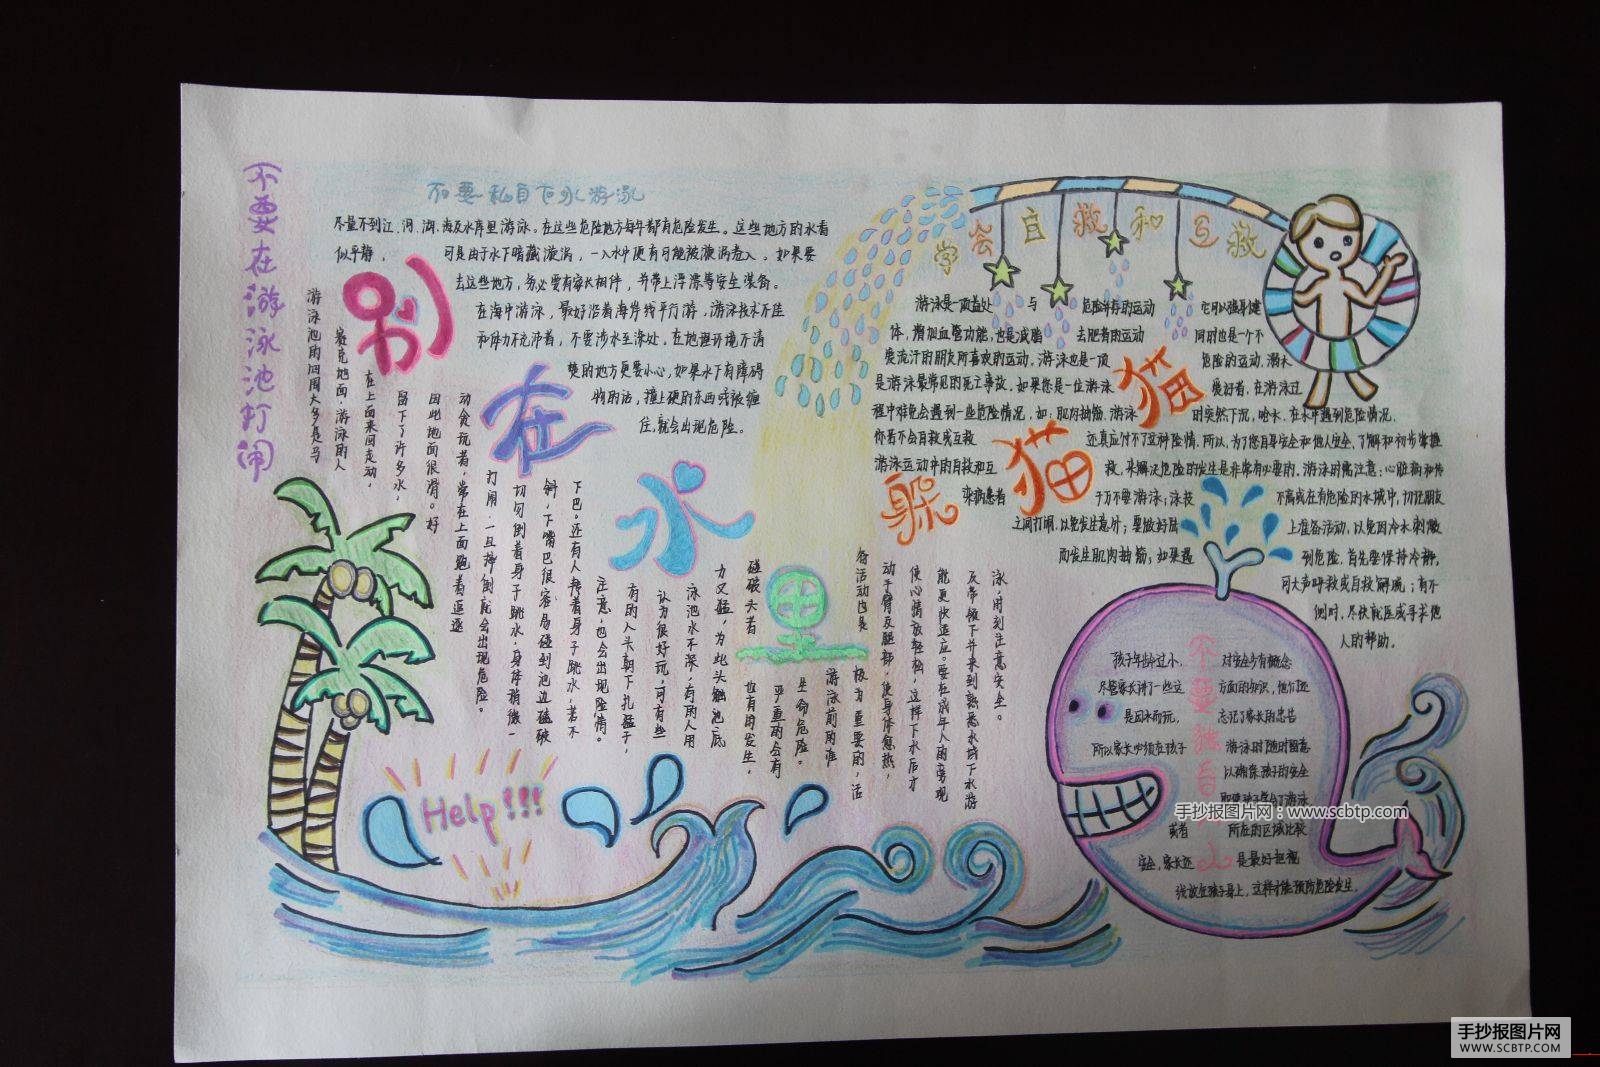 不要在游泳池打闹
不要私自下水游泳
尽量不到江、河、湖、海及水库里游泳。在这些危险地方每年都有危险发生。这些地方的水看
似平静， 可是由于水下暗藏漩涡，一入水中便有可能被漩涡卷入。如果要
去这些地方，务必要有家长相伴，并带上浮漂等安全装备。
在海中游泳，最好沿着海岸线平行游，游泳技术不佳
和体力不充沛者，不要涉水至深处。在地理环境不清
楚的地方更要小心，如果水下有障碍
物的话，撞上硬的东西或被缠
住，就会出现危险。
别
在
水
里
躲
猫
猫
游泳池的四周大多是马
赛克地面，游泳的人
在上面来回走动，
留下了许多水，
因此地面很滑。好
动贪玩者，常在上面跑着逗逐
打闹，一旦摔倒就会出现危险。
切勿倒着身子跳水，身体稍微一
斜，下嘴巴很容易碰到池边磕破
下巴。还有人挎着身子跳水，若不
注意，也会出现险情。
有的人头朝下扎猛子，
认为很好玩，可有些
泳池水不深，有的人用
力又猛，为此头触池底
碰破头者
也有的发生，
严重的会有
生命危险。
游泳前的准
备活动也是
极为重要的，活
动手臂及腿部，使身体愈热，
使心情放轻松，这样下水后才
能更快适应。要在成年人的旁观
及带领下并来到熟悉水域下水游
泳，时刻注意安全。
学会自救和互救
游泳是一项益处 与 危险并存的运动 它可以强身健
体，增加血管功能，也是减脂 去肥者的运动 同时也是一个不
爱流汗的朋友所喜欢的运动，游泳也是一项 危险的运动，溺水
是游泳最常见的死亡事故，如果您是一位游泳 爱好者，在游泳过
程中难免会遇到一些危险情况，如：肌肉抽筋、游泳 时突然下沉、呛水、在水中遇到危险情况，
你若不会自救或互救 还真应付不了这种险情，所以，为了您自身安全和他人安全，了解和初步掌握
游泳运动中的自救和互 救，来解决危险的发生是非常有必要的，游泳时需注意：心脏病和传
染病患者 千万不要游泳；泳技 不高或在有危险的水域中，切记朋友
之间打闹，以免发生意外；要做好岸 上准备活动，以免因冷水刺激
而发生肌肉抽筋；如果遇 到危险，首先要保持冷静，
可大声呼救或自救解脱；有不
测时，尽快就医或寻求他
人的帮助。
孩子年龄过小， 对安全少有概念
尽管家长讲了一些这 方面的知识，他们还
是因水而玩， 忘记了家长的忠告
所以家长必须在孩子 游泳时随时留意
以确保孩子的安全
或者 所在的区域比较
安全，家长还 是最好把视
线放在孩子身上，这样才能预防危险发生。
Help!!!
手抄报图片网：www.scbtp.com
手抄报图片网
WWW.SCBTP.COM